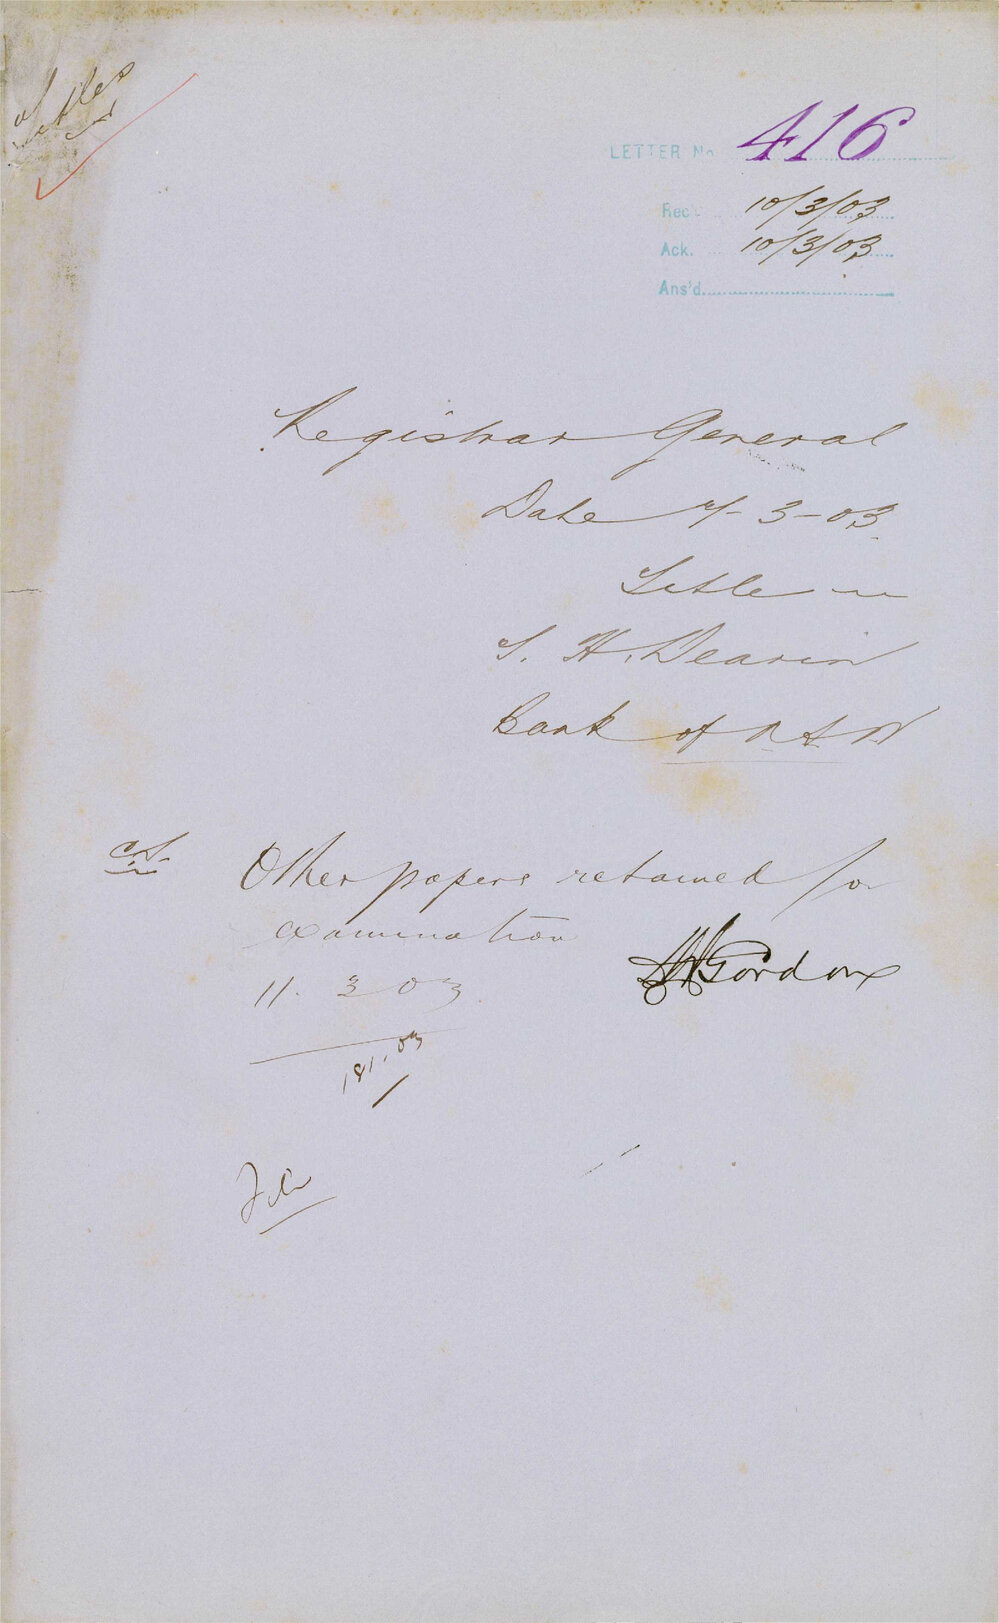 Titles
LETTER No 416
Rec'd 10/3/03
Ack. 10/3/03
Ans'd.
Registrar General
Date 7-3-03
Title
T. H. Dearin
Bank of N S W
Other papers retained for
examination
11. 3 03
Gordon
181.03
File